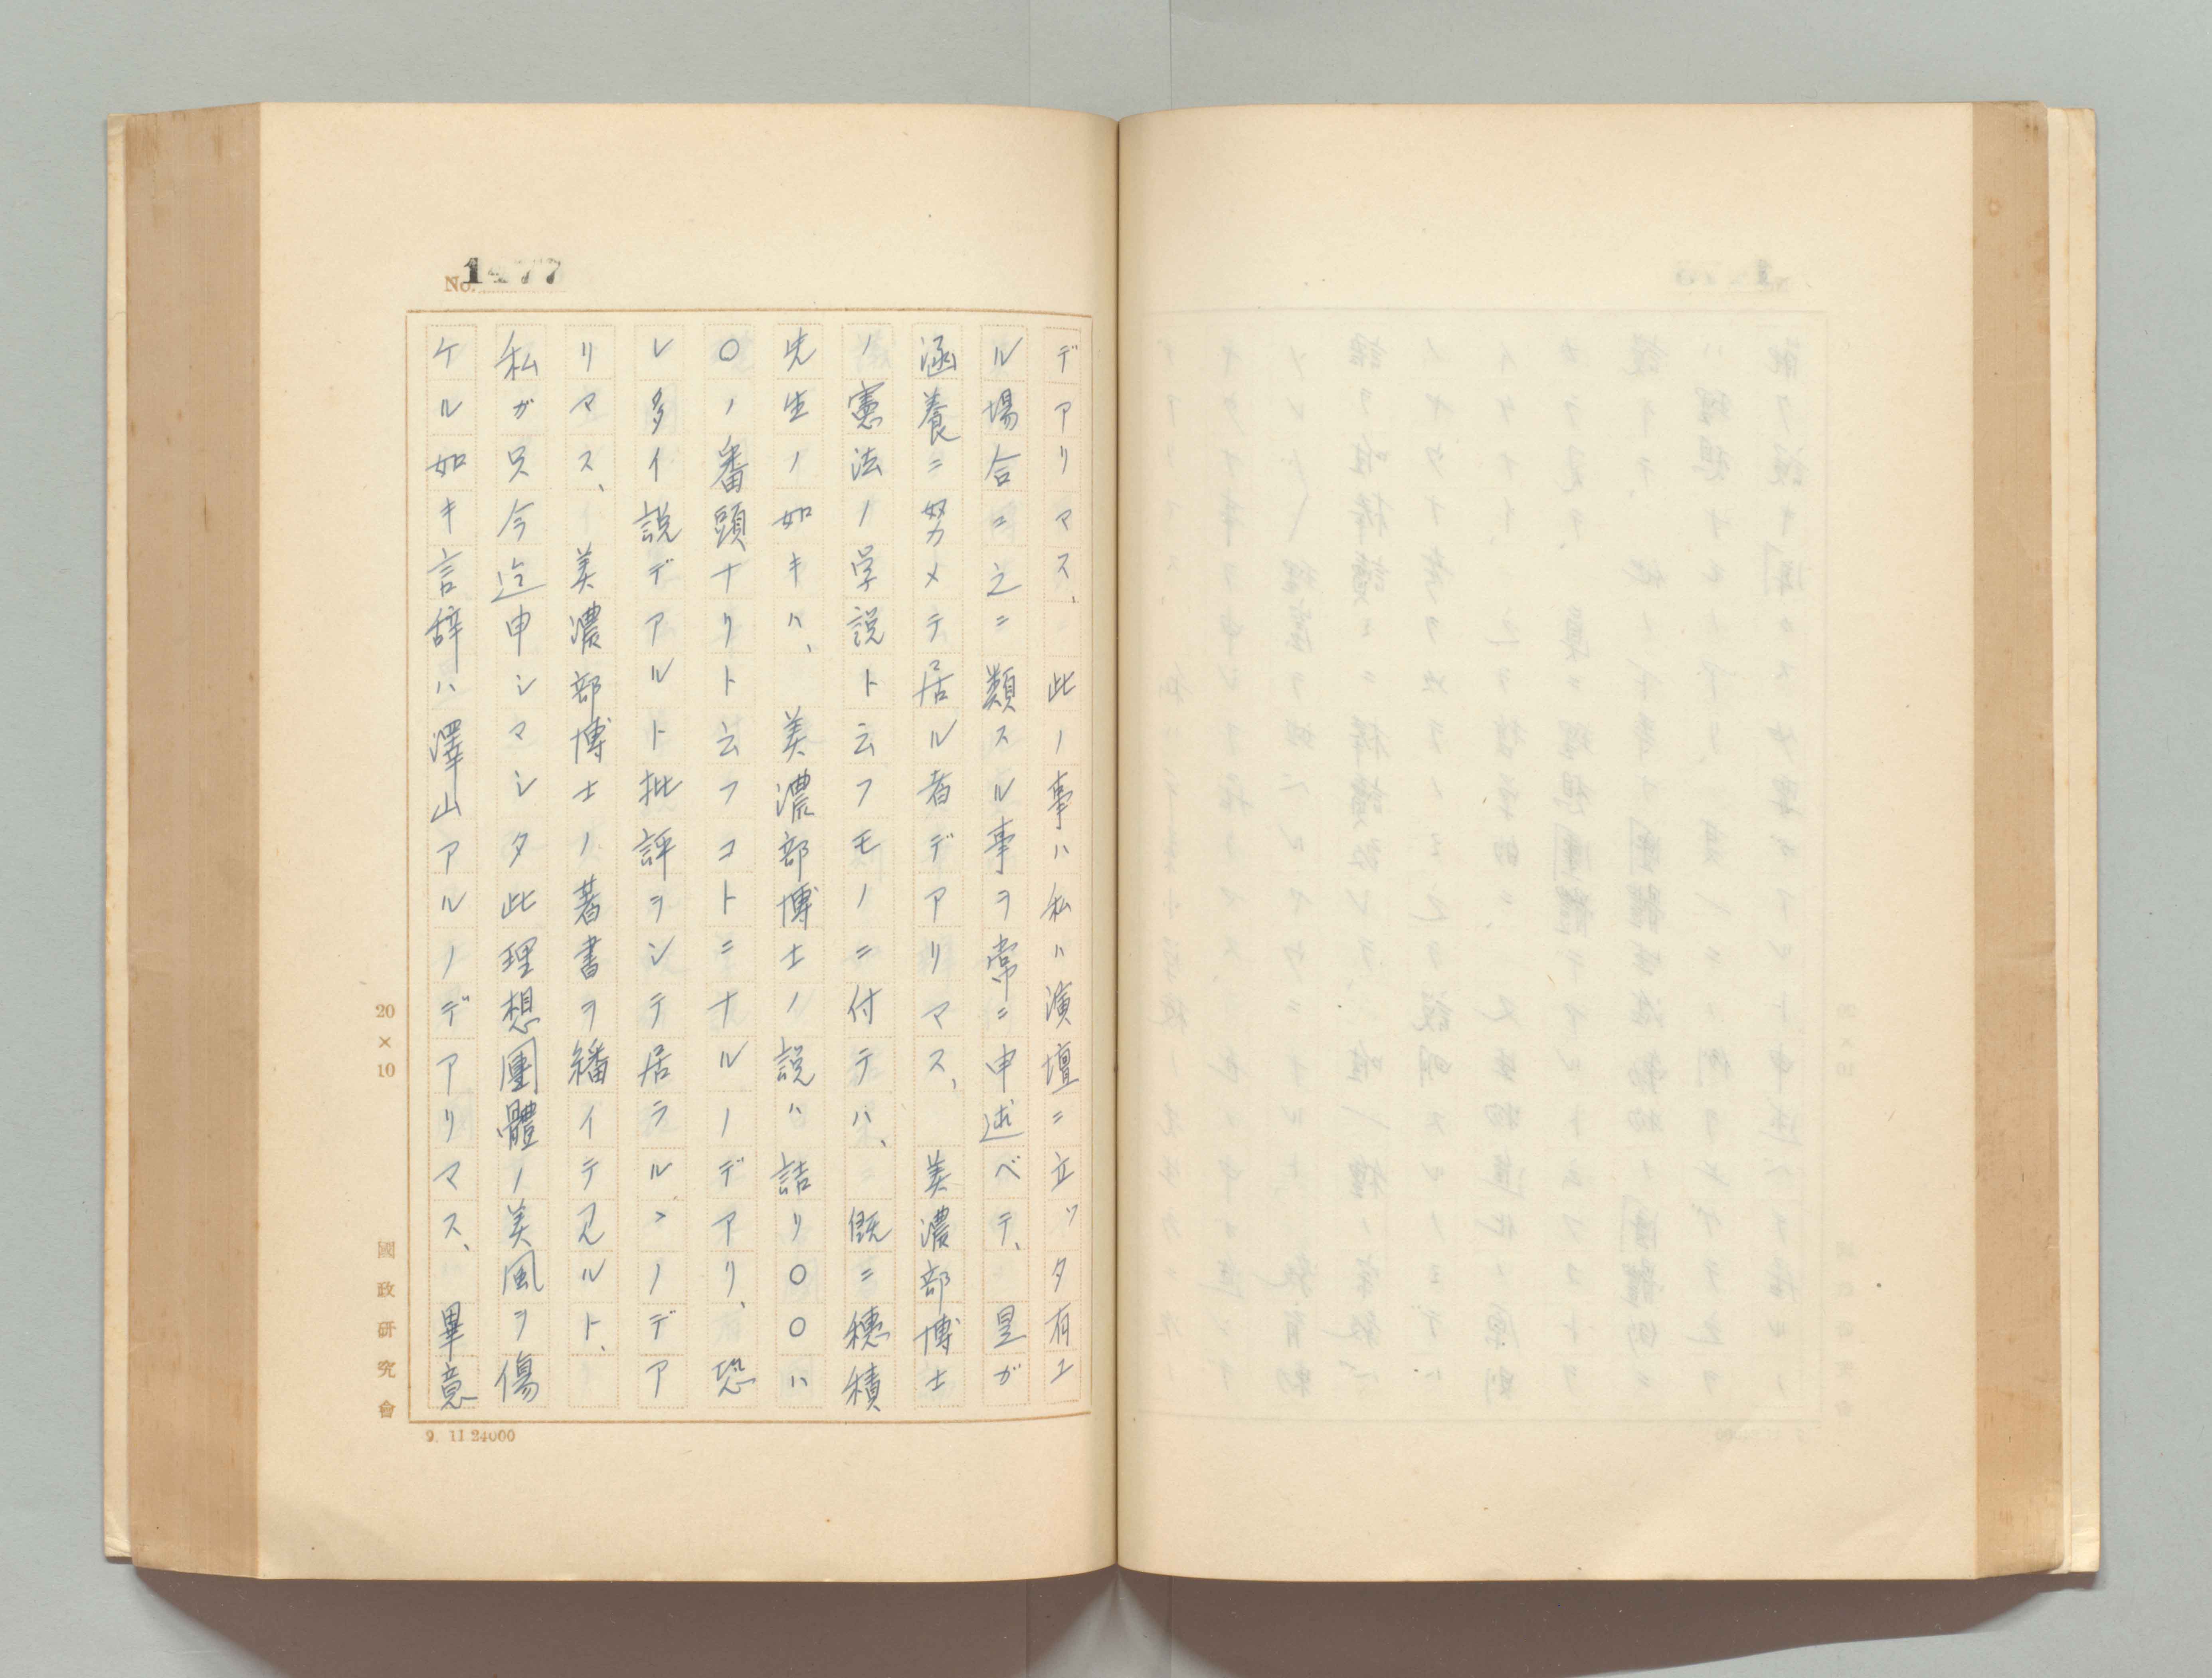 No. 1477
デアリマス、此ノ事ハ私ハ演壇ニ立ッタ有ユ
ル場合ニ之ニ類スル事ヲ常ニ申述ベテ、昰ガ
涵養ニ努メテ居ル者デアリマス、美濃部博士
ノ憲法ノ学説ト云フモノニ付テハ、既ニ穗積
先生ノ如キハ、美濃部博士ノ説ハ詰リ〇〇ハ
〇ノ番頭ナリト云フコトニナルノデアリ、恐
レ多イ説デアルト批評ヲシテ居ラルヽノデア
リマス、美濃部博士ノ著書ヲ繙イテ見ルト、
私ガ只今迄申シマシタ此理想團體ノ美風ヲ傷
ケル如キ言辞ハ澤山アルノデアリマス、畢意
20×10
國政研究會
9. 11 24000